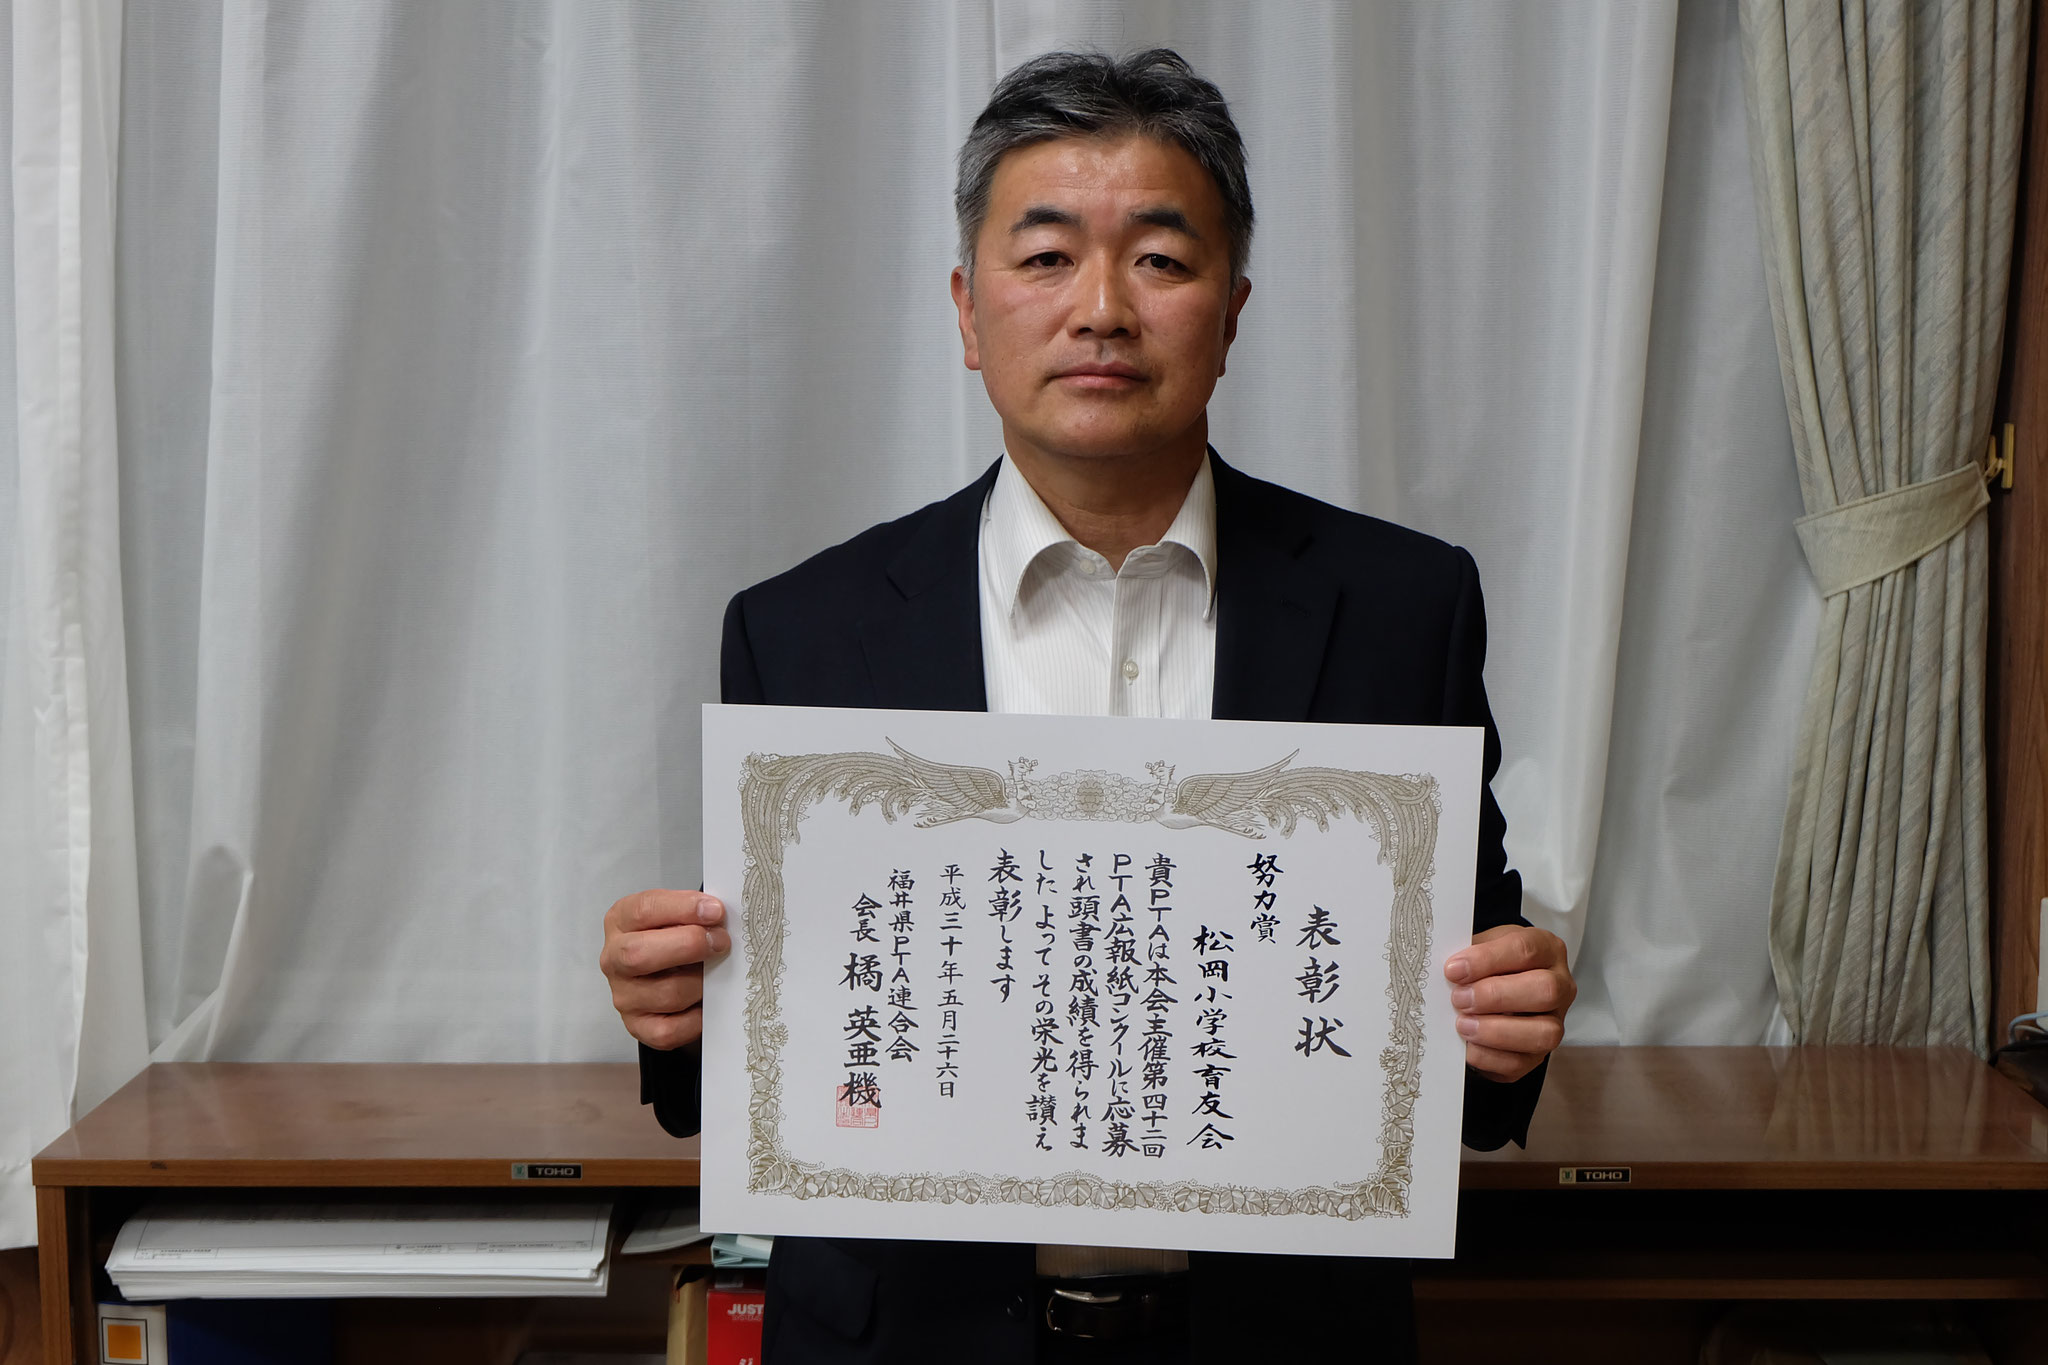 表彰状
努力賞
松岡小学校育友会
貴PTAは本会主催第四十二回
PTA広報紙コンクールに応募
され頭書の成績を得られま
した よってその栄光を讃え
表彰します
平成三十年五月二十六日
福井県PTA連合会
会長 橘 英亜機
TOHO
TOHO
JUST